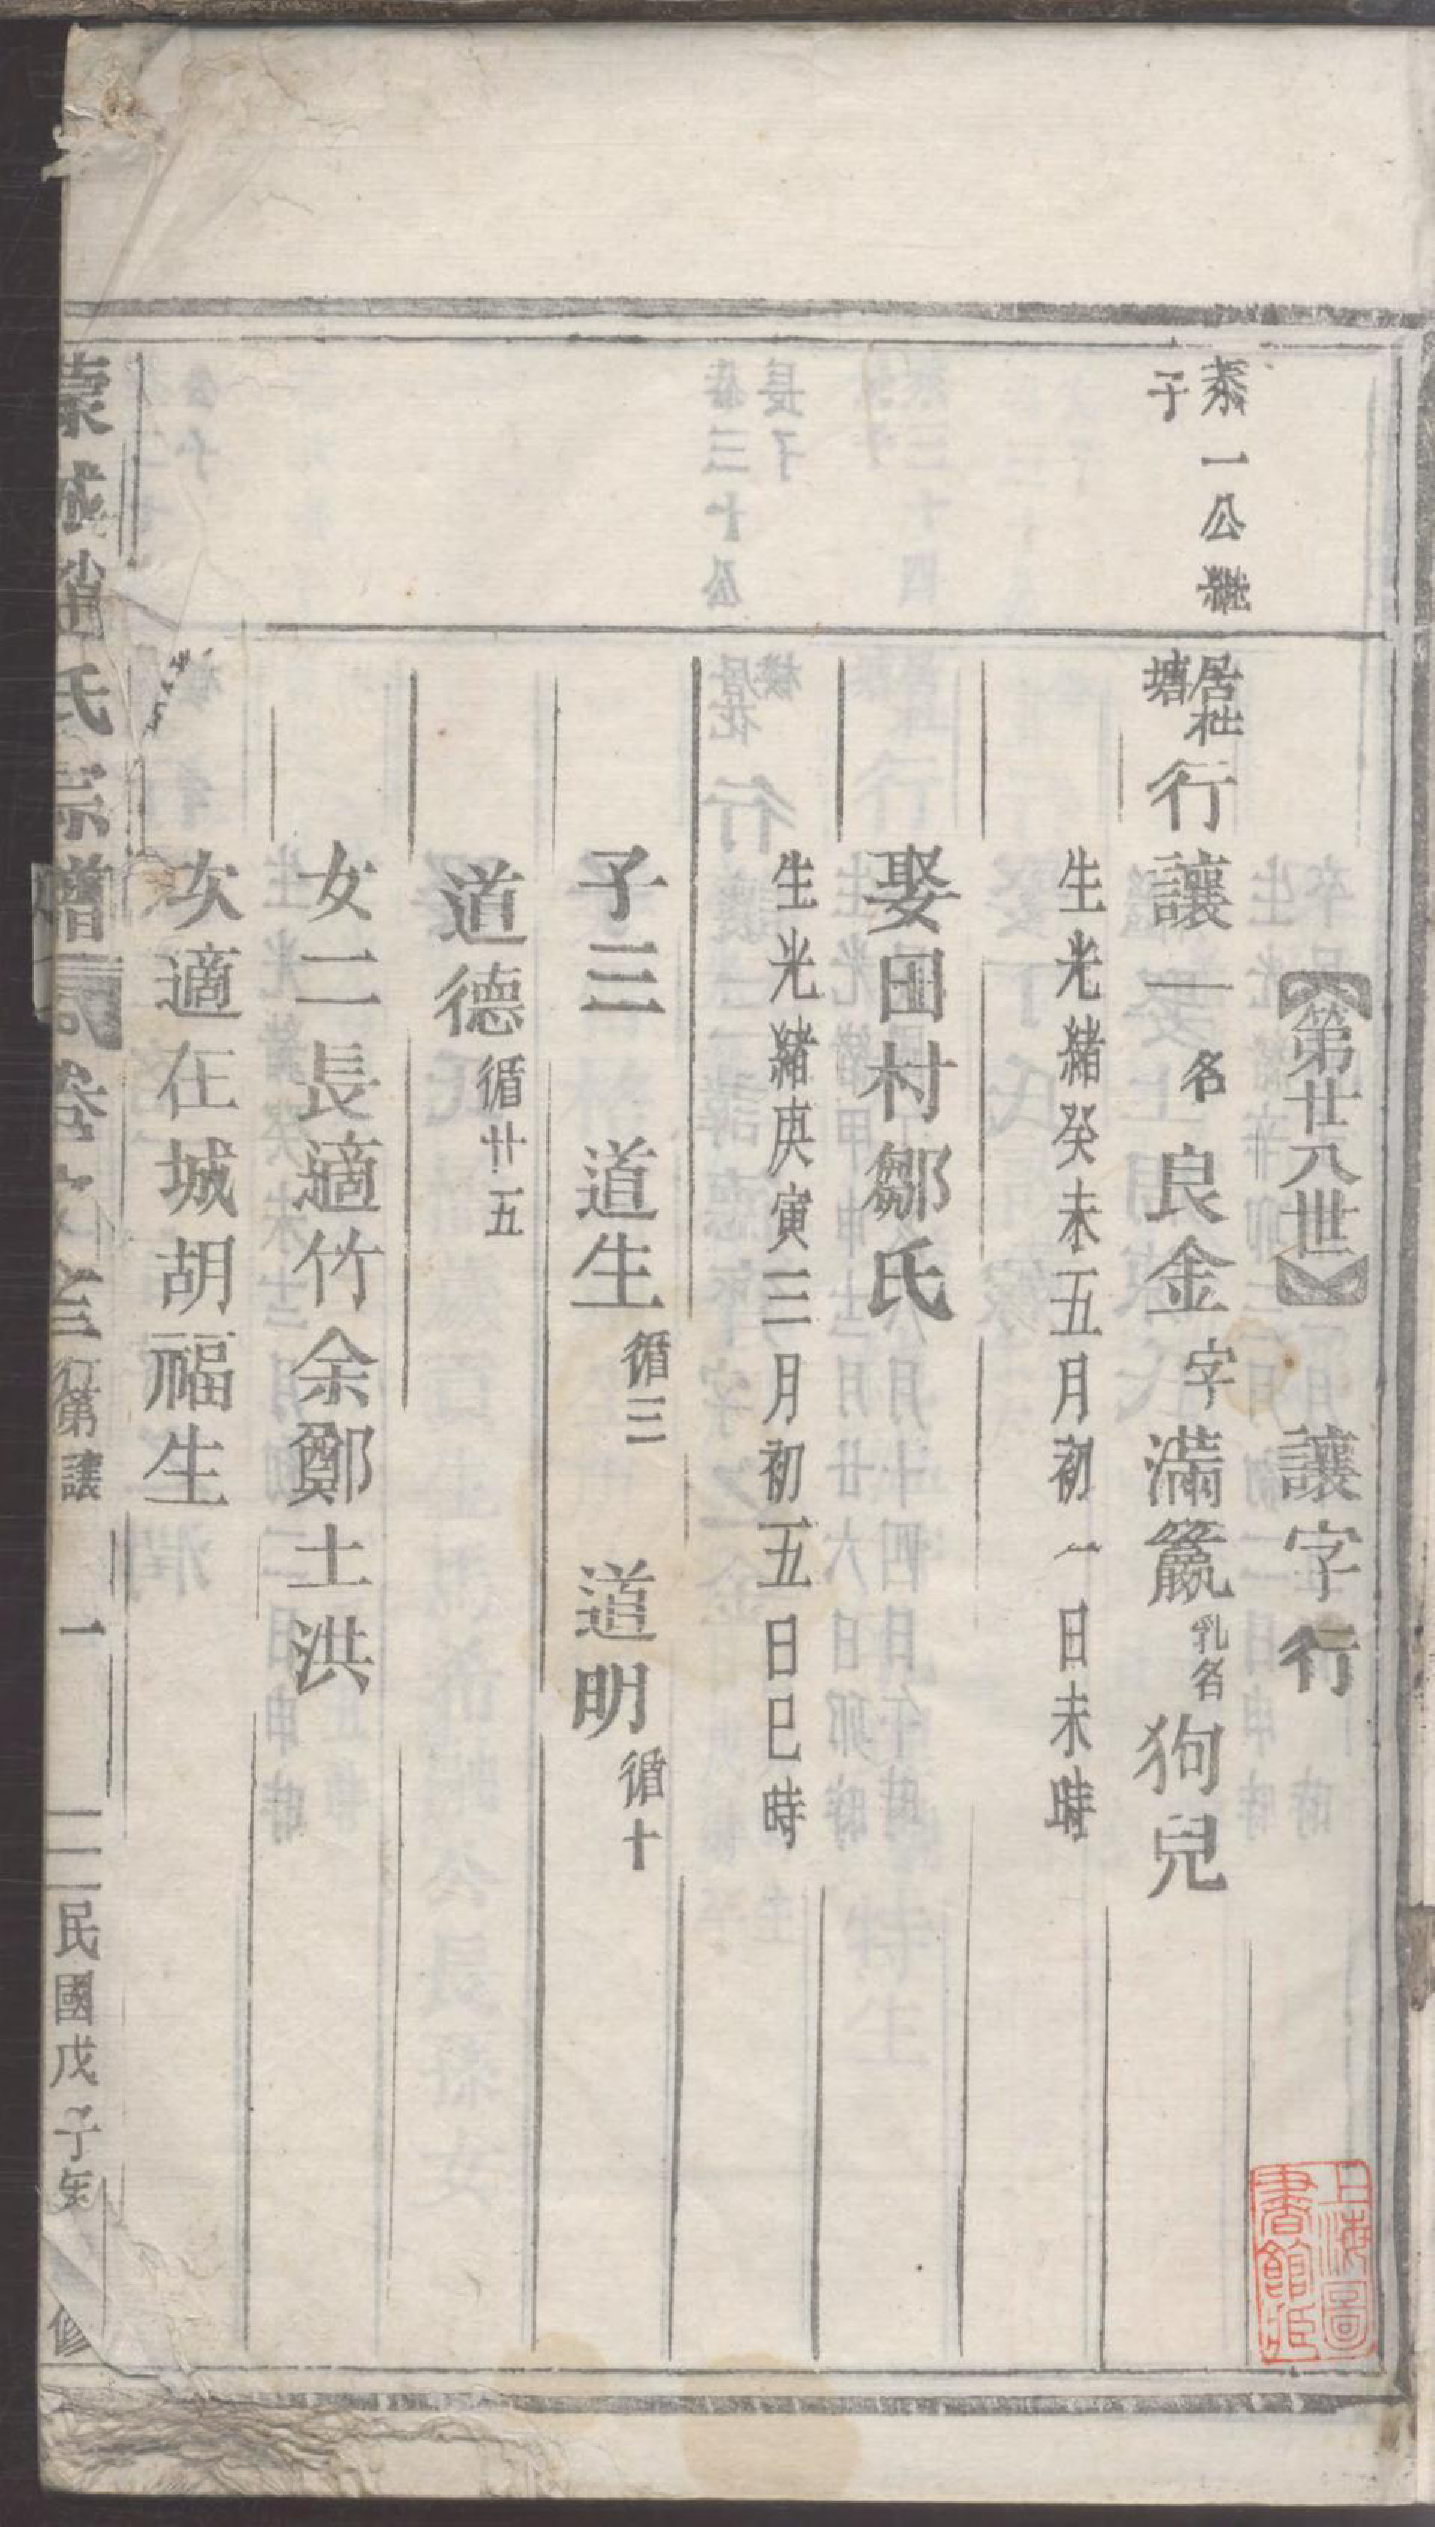 【第廿八世】 讓字行
泰一公繼
子
居柮
塘
行讓一名良金字滿籯乳名狗兒
生光緒癸未五月初一日未時
娶田村鄒氏
生光緒庚寅三月初五日巳時
子三 道生循三 道明循十
道德循廿五
女二長適竹余鄭土洪
次適在城胡福生
蒙城趙氏宗譜 卷之三行第讓 一 民國戊子年 修
上海圖
書館